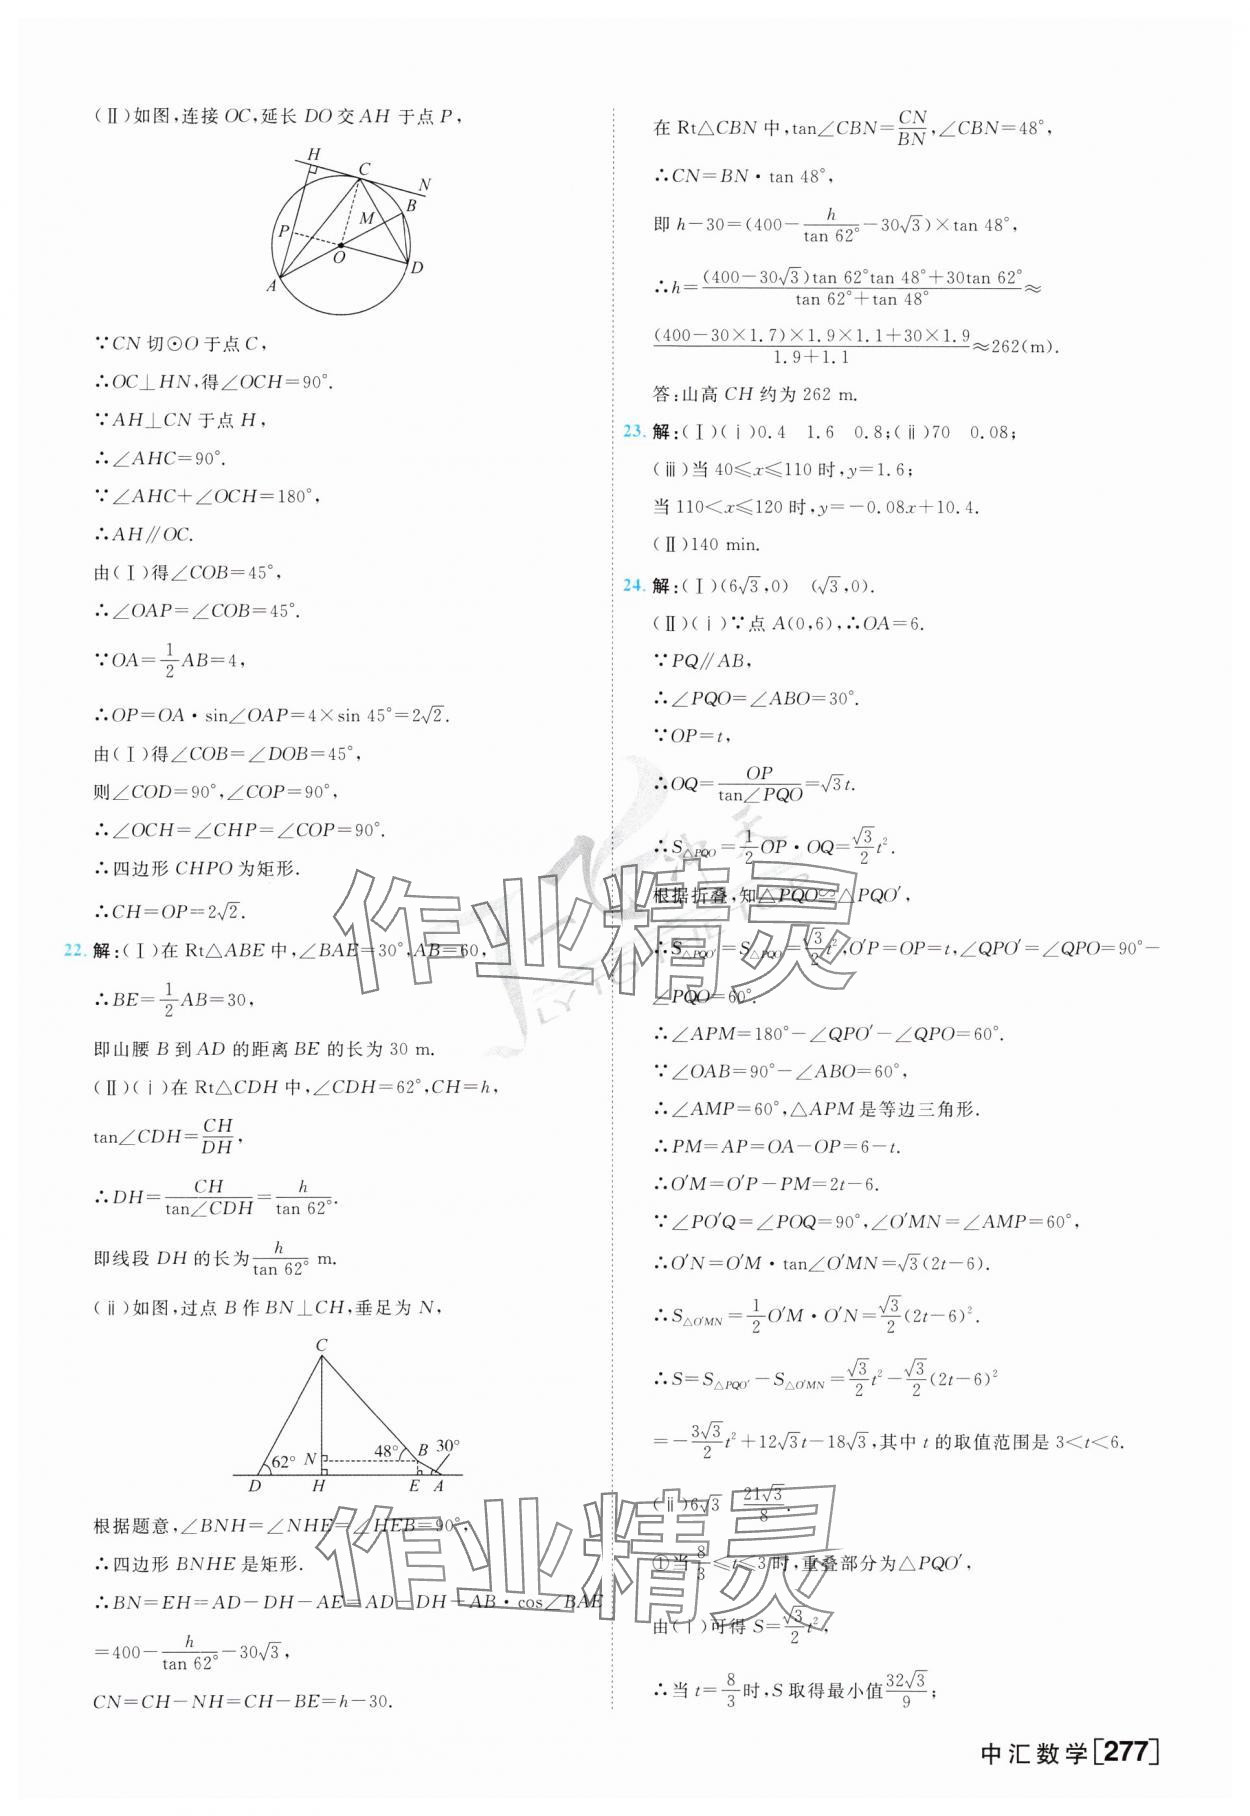 (Ⅱ)如图,连接 OC,延长 DO 交 AH 于点 P,
H
C
N
M
B
P
O
A
D
∵CN 切⊙O 于点 C,
∴OC⊥HN,得∠OCH=90°.
∵AH⊥CN 于点 H,
∴∠AHC=90°.
∵∠AHC+∠OCH=180°,
∴AH∥OC.
由(Ⅰ)得∠COB=45°,
∴∠OAP=∠COB=45°.
∵OA=1/2 AB=4,
∴OP=OA·sin∠OAP=4×sin 45°=2√2.
由(Ⅰ)得∠COB=∠DOB=45°,
则∠COD=90°,∠COP=90°,
∴∠OCH=∠CHP=∠COP=90°.
∴四边形 CHPO 为矩形.
∴CH=OP=2√2.
22. 解:(Ⅰ)在 Rt△ABE 中,∠BAE=30°,AB=60,
∴BE=1/2 AB=30,
即山腰 B 到 AD 的距离 BE 的长为 30 m.
(Ⅱ)(ⅰ)在 Rt△CDH 中,∠CDH=62°,CH=h,
tan∠CDH=CH/DH,
∴DH=CH/tan∠CDH=h/tan 62°.
即线段 DH 的长为 h/tan 62° m.
(ⅱ)如图,过点 B 作 BN⊥CH,垂足为 N,
C
62° N 48° B 30°
D H E A
根据题意,∠BNH=∠NHE=∠HEB=90°,
∴四边形 BNHE 是矩形.
∴BN=EH=AD-DH-AE=AD-DH-AB·cos∠BAE
=400-h/tan 62°-30√3,
CN=CH-NH=CH-BE=h-30.
在 Rt△CBN 中,tan∠CBN=CN/BN,∠CBN=48°,
∴CN=BN·tan 48°,
即 h-30=(400-h/tan 62°-30√3)×tan 48°,
∴h=((400-30√3)tan 62°tan 48°+30tan 62°)/(tan 62°+tan 48°)≈
((400-30×1.7)×1.9×1.1+30×1.9)/(1.9+1.1)≈262(m).
答:山高 CH 约为 262 m.
23. 解:(Ⅰ)(ⅰ)0.4 1.6 0.8;(ⅱ)70 0.08;
(ⅲ)当 40≤x≤110 时,y=1.6;
当 110<x≤120 时,y=-0.08x+10.4.
(Ⅱ)140 min.
24. 解:(Ⅰ)(6√3,0) (√3,0).
(Ⅱ)(ⅰ)∵点 A(0,6),∴OA=6.
∵PQ∥AB,
∴∠PQO=∠ABO=30°.
∵OP=t,
∴OQ=OP/tan∠PQO=√3t.
∴S△PQO=1/2 OP·OQ=√3/2 t².
根据折叠,知△PQO≌△PQO′,
∴S△PQO′=S△PQO=√3/2 t²,O′P=OP=t,∠QPO′=∠QPO=90°-
∠PQO=60°.
∴∠APM=180°-∠QPO′-∠QPO=60°.
∵∠OAB=90°-∠ABO=60°,
∴∠AMP=60°,△APM 是等边三角形.
∴PM=AP=OA-OP=6-t.
∴O′M=O′P-PM=2t-6.
∵∠PO′Q=∠POQ=90°,∠O′MN=∠AMP=60°,
∴O′N=O′M·tan∠O′MN=√3(2t-6).
∴S△O′MN=1/2 O′M·O′N=√3/2 (2t-6)².
∴S=S△PQO′-S△O′MN=√3/2 t²-√3/2 (2t-6)²
=-3√3/2 t²+12√3t-18√3,其中 t 的取值范围是 3<t<6.
(ⅱ)6√3 21√3/8.
①当 8/3≤t≤3 时,重叠部分为△PQO′,
由(ⅰ)可得 S=√3/2 t²,
∴当 t=8/3 时,S 取得最小值 32√3/9;
作业精灵
作业精灵
中汇数学[277]